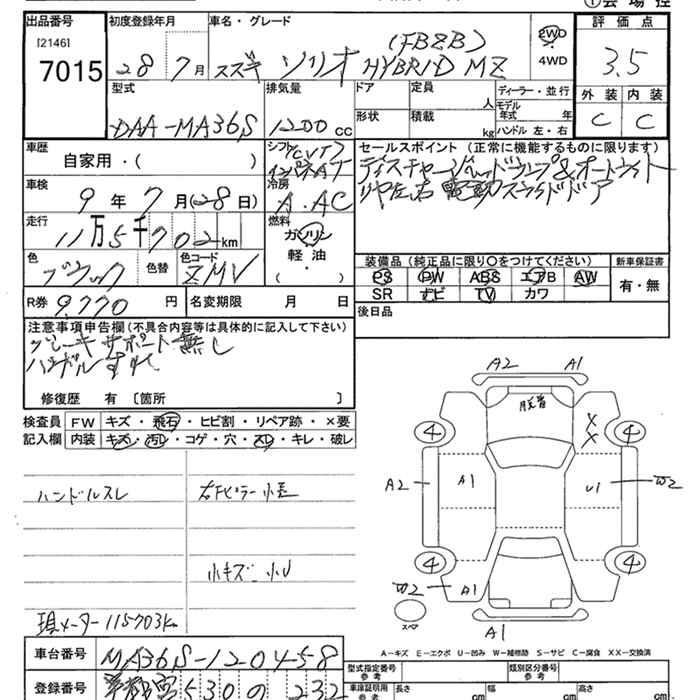 ①会場控
出品番号
[2146]
7015
初度登録年月
28 年 7 月
車名・グレード
(FBZB)
スズキ ソリオ HYBRID MZ
2WD
4WD
評価点
3.5
外装 内装
C C
型式
DAA-MA36S
排気量
1200 cc
ドア
形状
定員
人
積載
kg
ディーラー・並行
モデル年式 年
ハンドル 左・右
車歴
自家用・( )
シフト
(CVT)
インパネAT
車検
9 年 7 月(28日)
冷房
A.AC
走行
11万5千702km
燃料
ガソリン
軽油
・
( )
色
ブラック
色替
色コード
ZMV
R券 9,770 円
名変期限 月 日
セールスポイント (正常に機能するものに限ります)
ディスチャージヘッドランプ&オートライト
リヤ左右電動スライドドア
装備品 (純正品に限り〇をつけてください)
新車保証書
PS PW ABS エアB AW
SR ナビ TV カワ
有・無
後日品
注意事項申告欄(不具合内容等は具体的に記入して下さい)
ブレーキサポート無し
ハンドルすれ
修復歴 有 〔箇所 〕
検査員記入欄
FW キズ・飛石・ヒビ割・リペア跡・×要
内装 キズ・汚レ・コゲ・穴・スレ・キレ・破レ
ハンドルスレ
右Fピラー小走
小キズ 小U
現メーター115703km
A2 A1
脱着
X
X
4 4
A2 A1 U1 W2
4 4
W2 A1
スペア
A1
A-キズ E-エクボ U-凹み W-補修跡 S-サビ C-腐食 XX-交換済
車台番号
MA36S-120458
登録番号
530 の 232
型式指定番号
参考
類別区分番号
参考
車庫証明用
参考
長さ cm
幅 cm
高さ cm